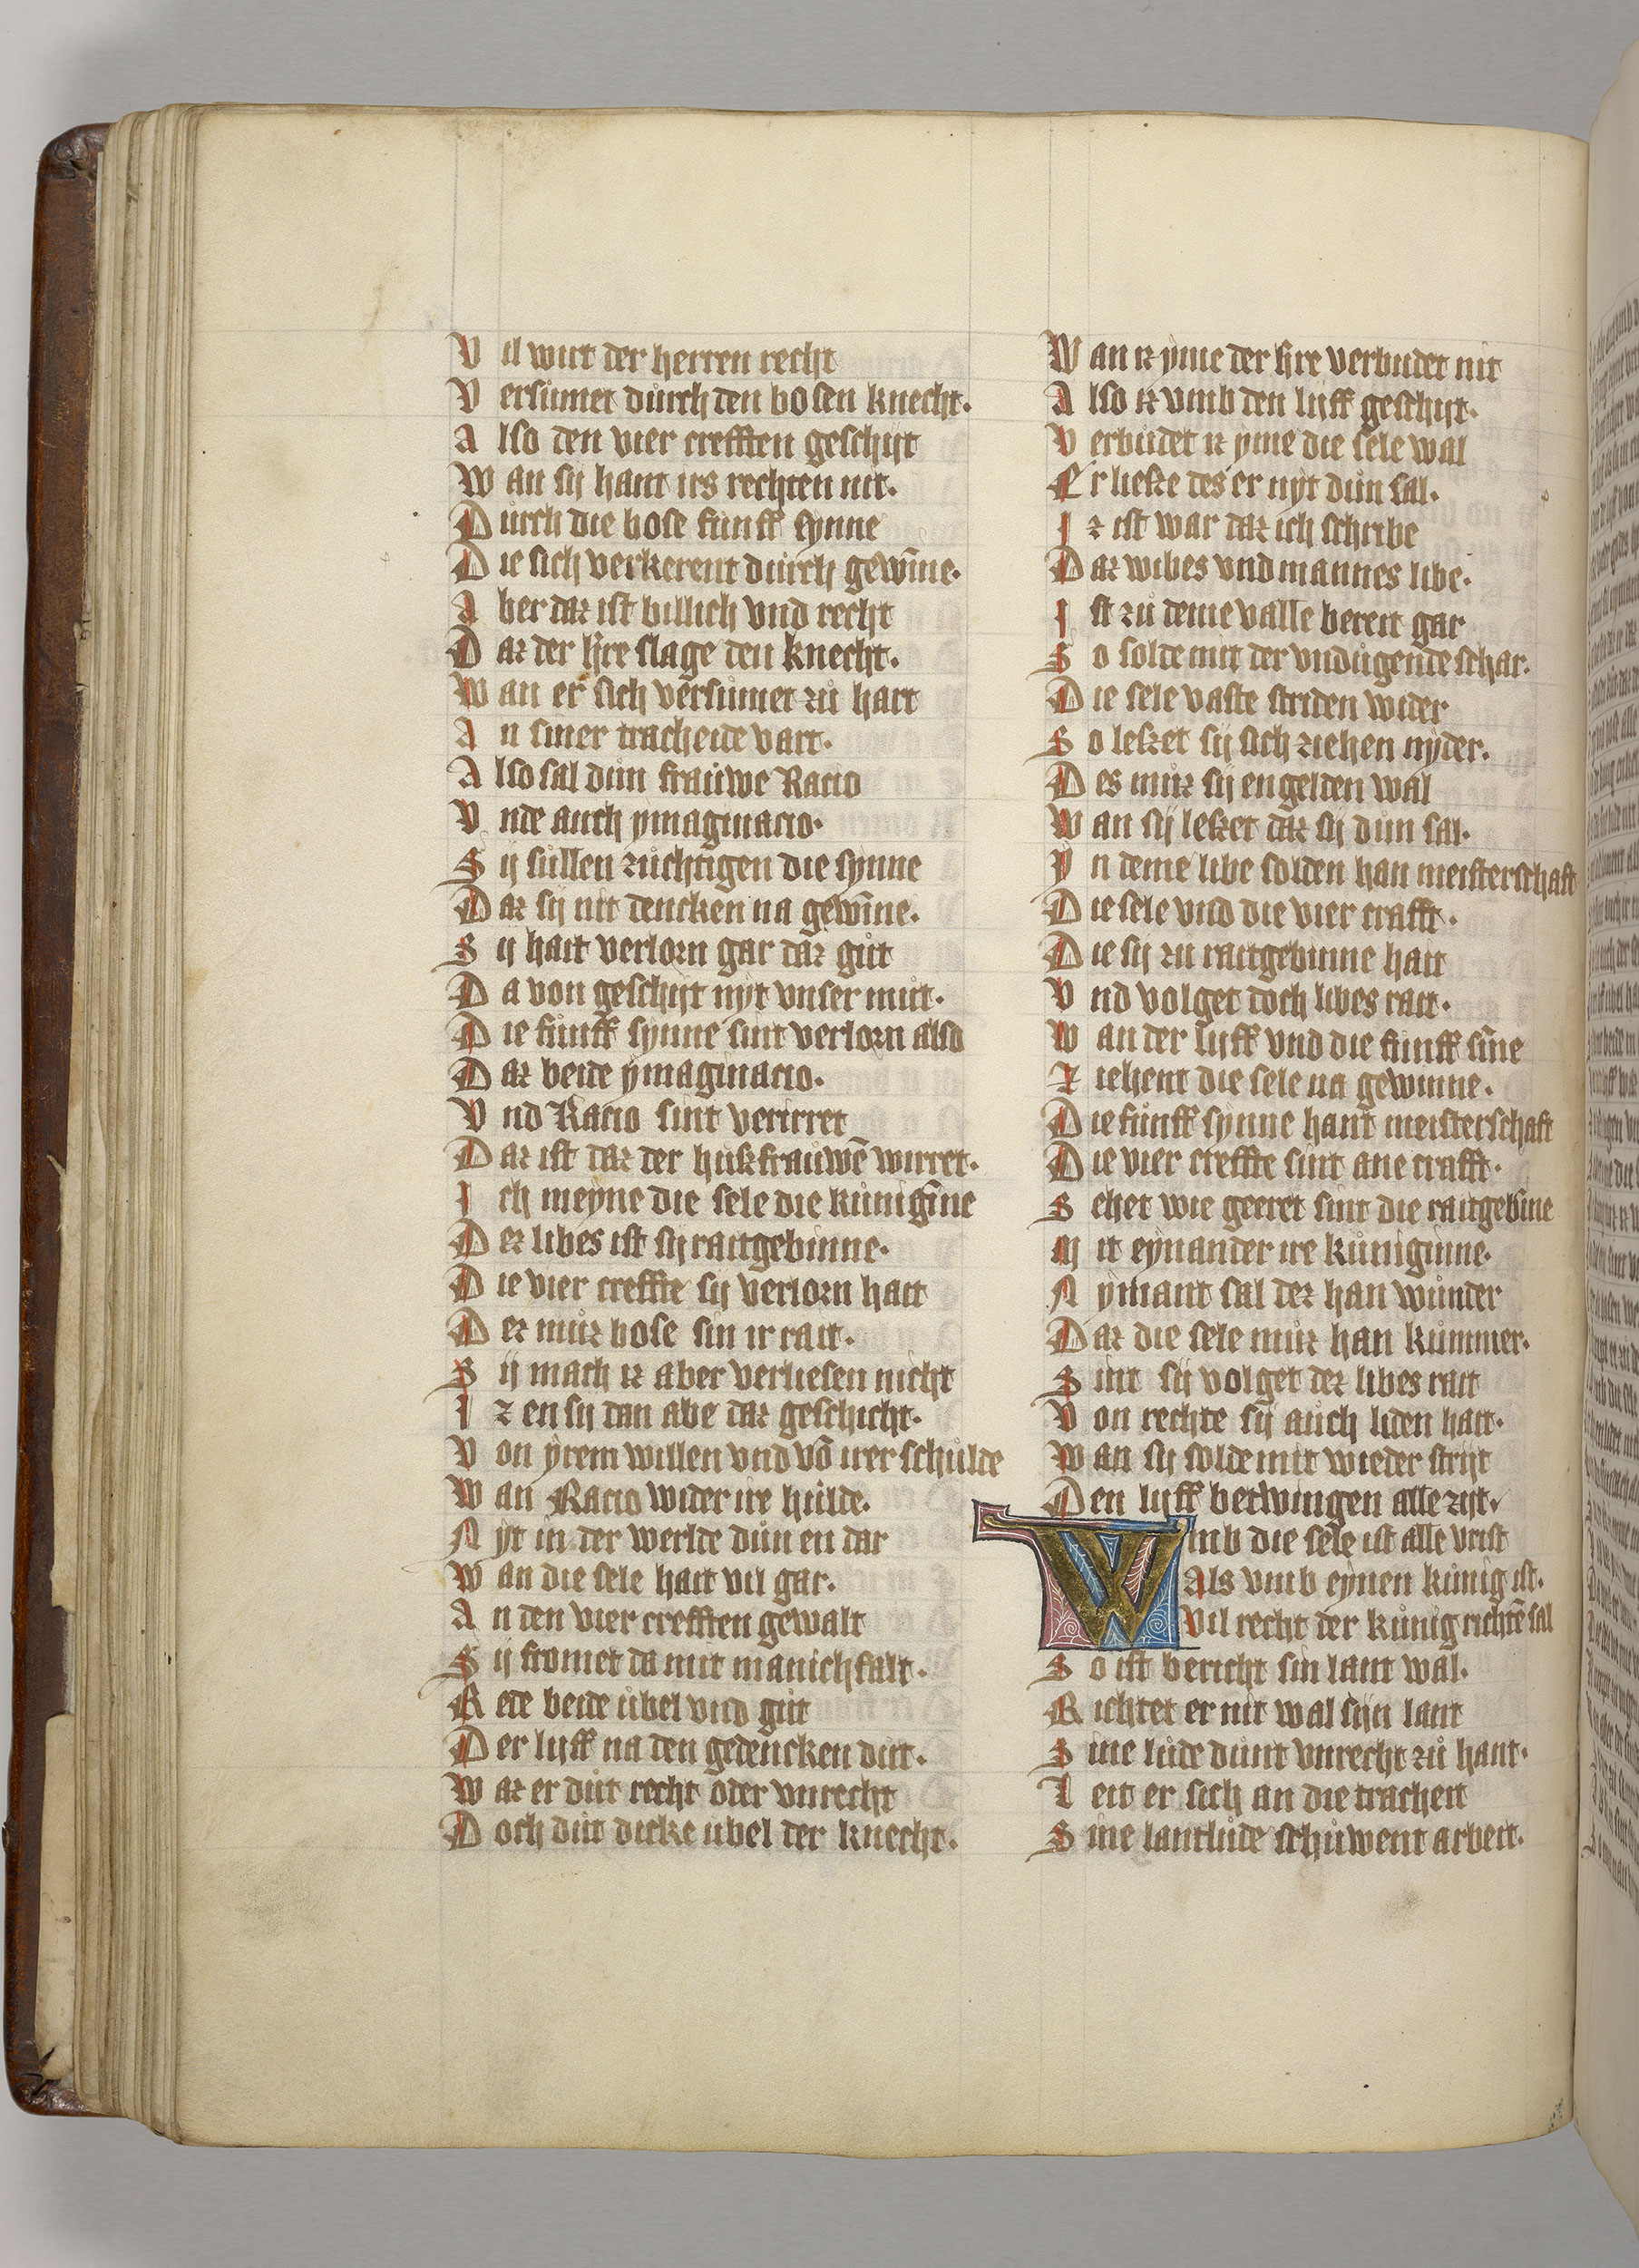 Vil wirt der herren recht
Versümet durch den bosen knecht.
Also den vier crefften geschijt
Wan sij hant irs rechten nit.
Durch die bose funff synne
Die sich verkerent durch gewīne.
Aber daz ist billich vnd recht
Daz der h̄re slage den knecht.
Wan er sich versümet zů hart
An siner tracheide vart.
Also sal důn fraůwe Racio
Vnde auch ymaginacio.
Sij süllen züchtigen die synne
Daz sij nit dencken na gewīne.
Sij hait verlorn gar daz gůt
Da von geschijt nyt vnser můt.
Die fünff synne sint verlorn also
Daz beide ymaginacio.
Vnd Racio sint verirret
Daz ist daz der hußfraůwē wirret.
Ich meyne die sele die künigīne
Dez libes ist sij raitgebinne.
Die vier creffte sij verlorn hait
Dez můz bose sin ir rait.
Sij mach iz aber verliesen nicht
Iz en sij dan abe daz geschicht.
Von yrem willen vnd vō irer schülde
Wan Racio wider ire hülde.
Nyt in der werlde důn en dar
Wan die sele hait vil gar.
An den vier crefften gewalt
Sij fromet da mit manichfalt.
Rede beide übel vnd gůt
Der lijff na den gedencken důt.
Waz er důt recht oder vnrecht
Doch důt dicke übel der knecht.
Wan iz yme der h̄re verbudet nit
Also iz vmb den lijff geschijt.
Verbudet iz yme die sele wal
Er ließe des er nyt důn sal.
Iz ist war daz ich schribe
Daz wibes vnd mannes libe.
Ist zů deme valle bereit gar
So solde mit der vndůgende schar.
Die sele vaste striden wider
So leßet sij sich ziehen nyder.
Des můz sij engelden wal
Wan sij leßet daz sij důn sal.
Yn deme libe solden han meisterschaft
Die sele vnd die vier crafft.
Die sij zu raitgebinne hait
Vnd volget doch libes rait.
Wan der lijff vnd die fünff sīne
Ziehent die sele na gewinne.
Die fünff synne hant meisterschaft
Die vier creffte sint ane crafft.
Sehet wie geeret sint die raitgebīne
Mit eynander ire küniginne.
Nymant sal dez han wunder
Daz die sele můz han kummer.
Sint sij volget dez libes rait
Von rechte sij aůch liden hait.
Wan sij solde mit wieder strijt
Den lijff betwingen alle zijt.
Wmb die sele ist alle vrist
Als vmb eynen künig ist.
Vil recht der künig richtē sal
So ist bericht sin lant wal.
Richtet er nit wal sijn lant
Sine lude důnt vnrecht zů hant.
Leit er sich an die tracheit
Sine lantlude schüwent arbeit.